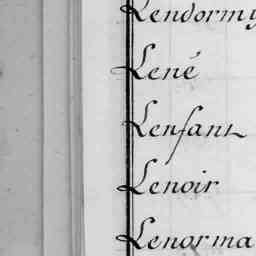 Lendormy
Lené
Lenfant
Lenoir
Lenorma